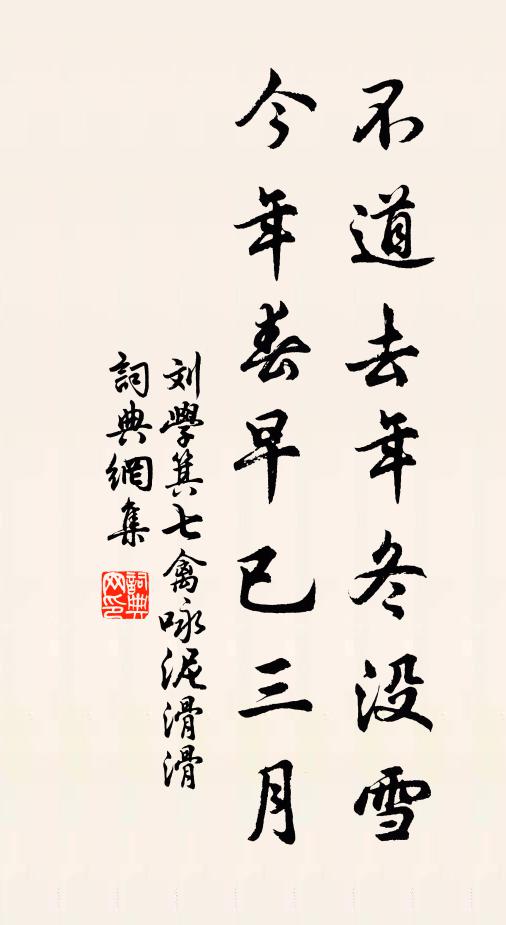 不道去年冬没雪
今年春早已三月
刘學箕七禽咏泥滑滑
詞典網集
詞典网印